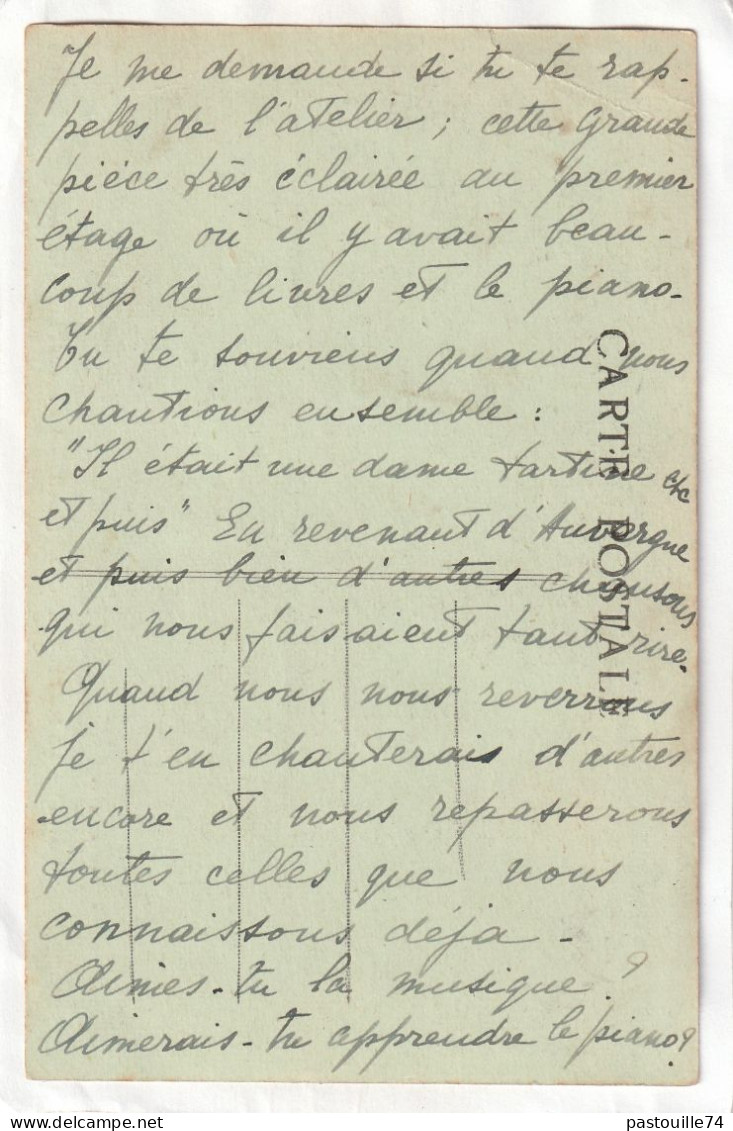 Je me demande si tu te rap-
pelles de l'atelier ; cette grande
piéce très éclairée au premier
étage où il y avait beau-
coup de livres et le piano.
Tu te souviens quand nous
chantions ensemble :
"Il était une dame tartine etc
et puis" En revenant d'Auvergne
et puis bien d'autres chansons
qui nous faisaient tant rire.
Quand nous nous reverrons
je t'en chanterais d'autres
encore et nous repasserons
toutes celles que nous
connaissons déja -
Aimes-tu la musique ?
Aimerais-tu apprendre le piano ?
CARTE POSTALE
pastouille74